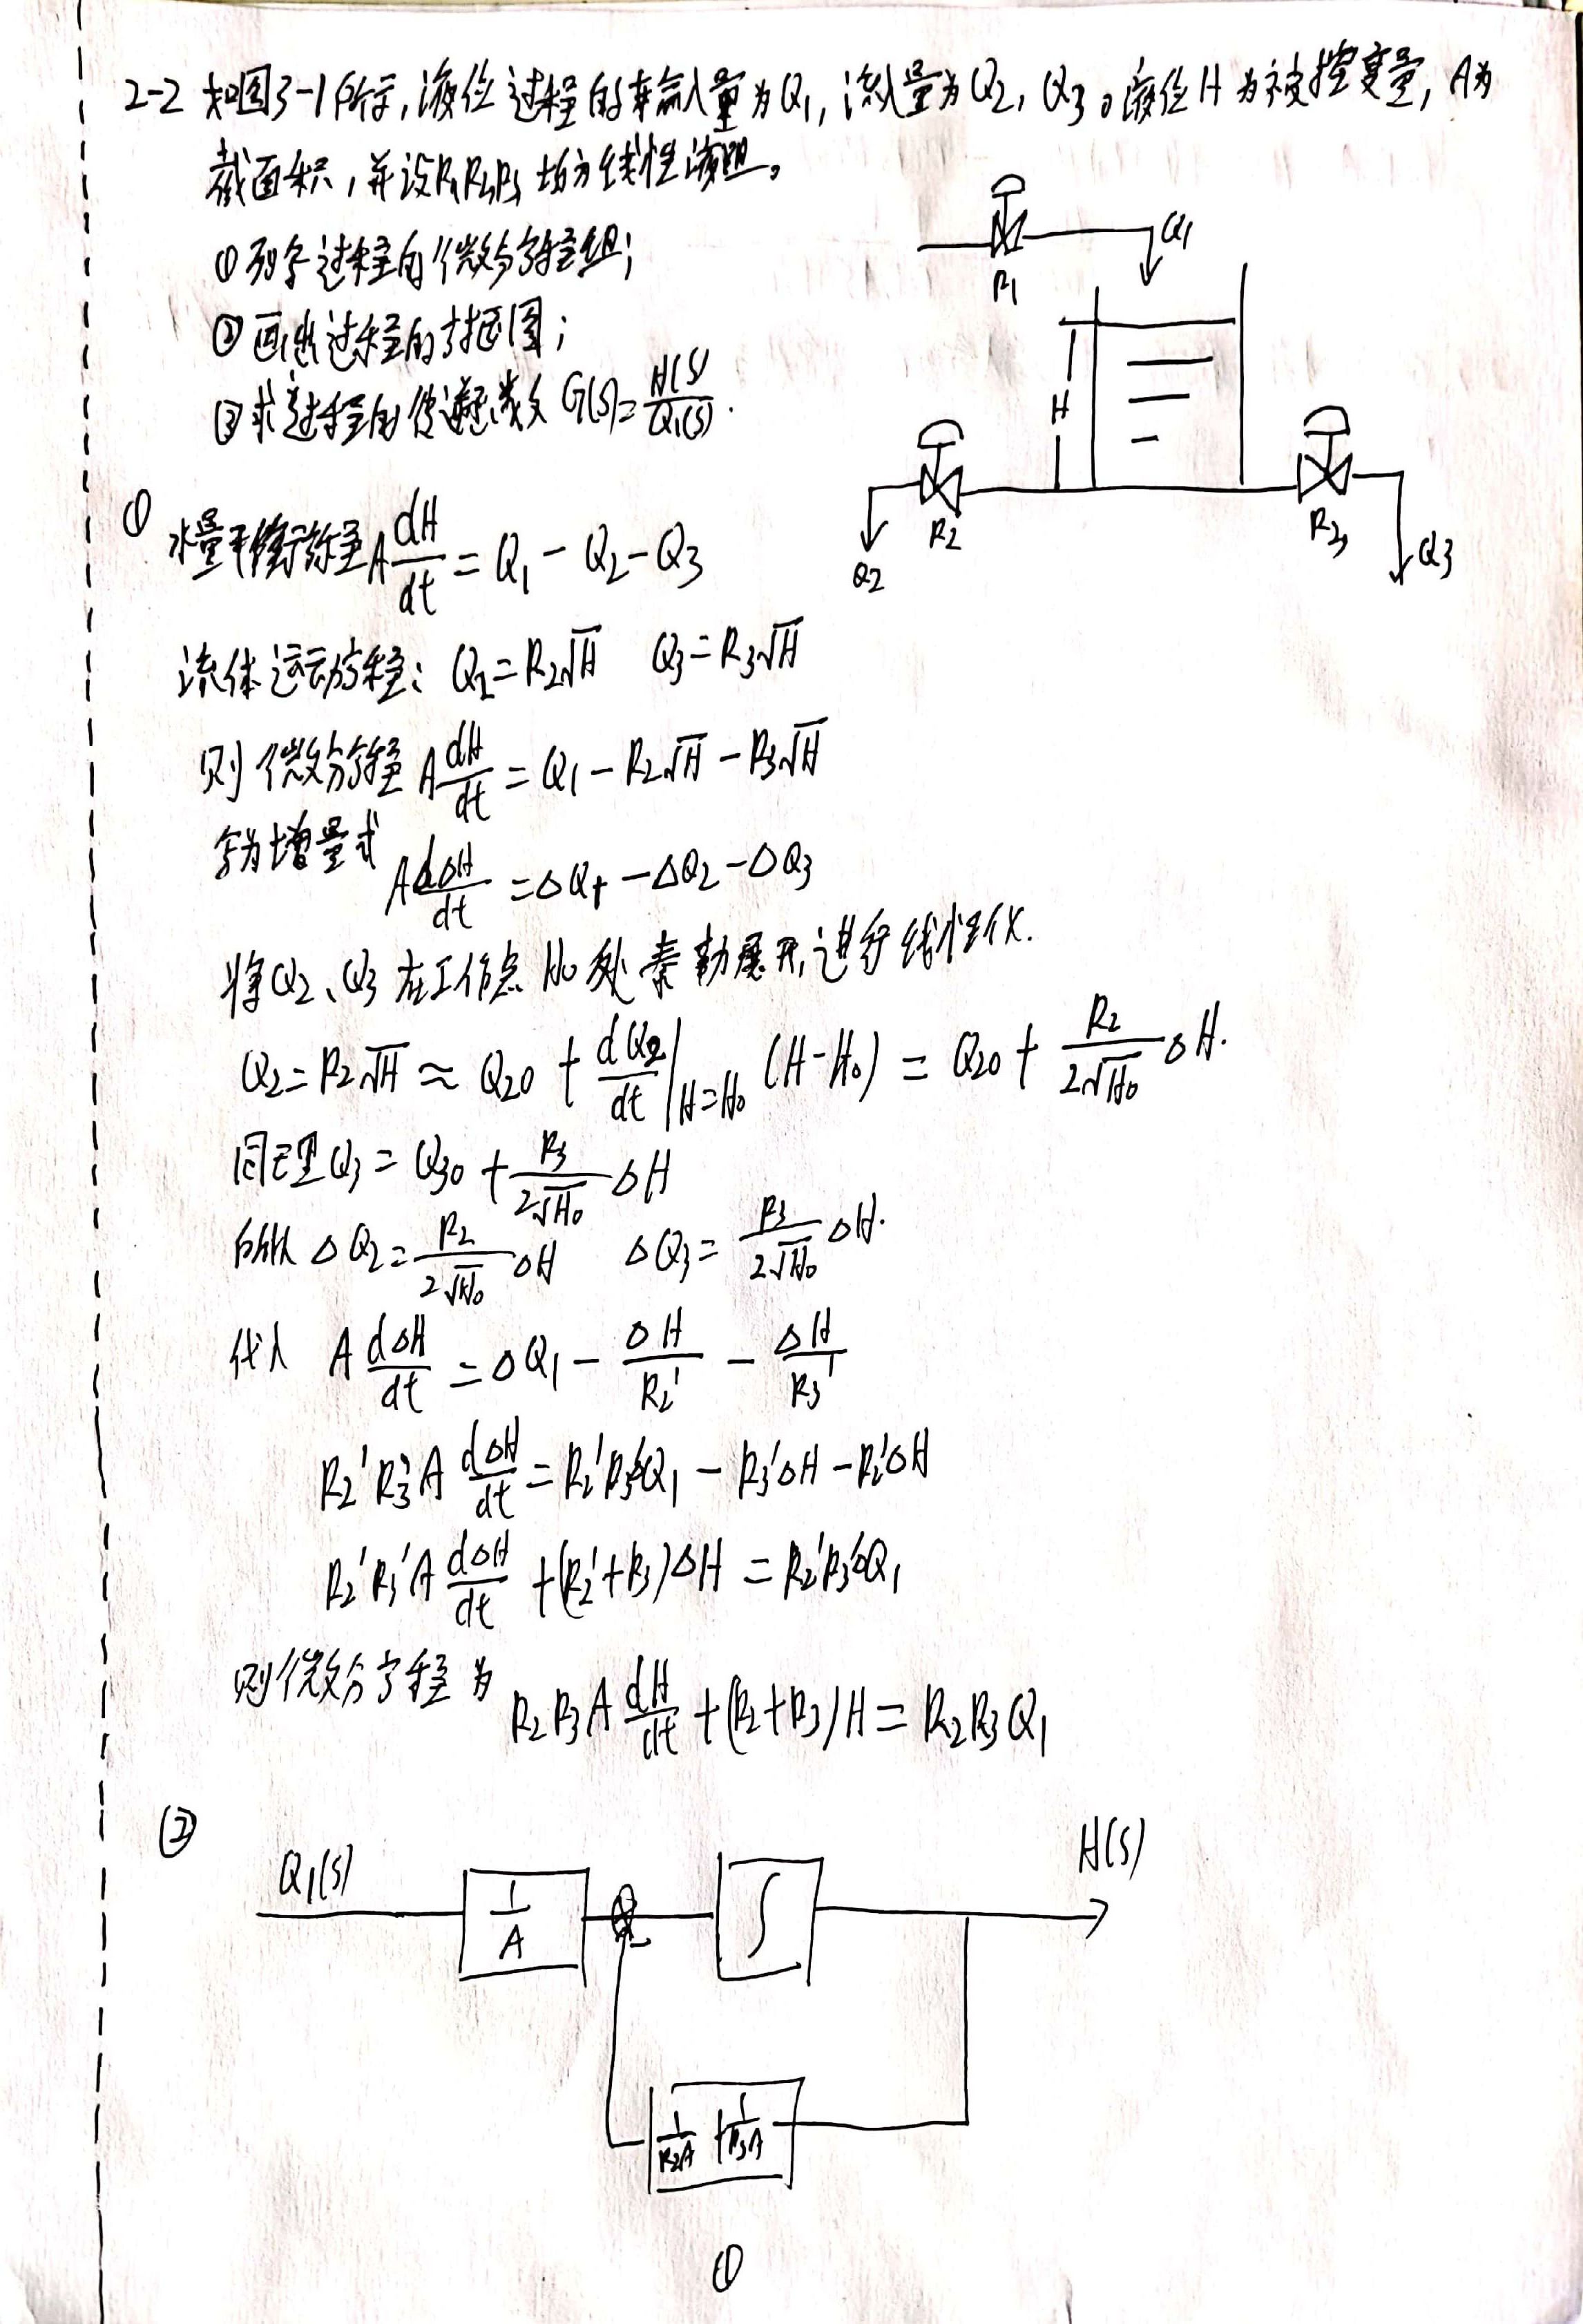 2-2 如图3-1所示,液位过程的输入量为Q₁,流出量为Q₂,Q₃。液位H为被控变量,A为
截面积,并设R₁R₂R₃均为线性液阻。
①列写过程的微分方程组;
②画出过程的方框图;
③求过程的传递函数 G(S)=H(S)/Q₁(S).
Q1
R1
H
R2
R3
Q2
Q3
① 水量平衡方程 A dH/dt = Q₁ - Q₂ - Q₃
流体运动方程: Q₂=R₂√H Q₃=R₃√H
则微分方程 A dH/dt = Q₁ - R₂√H - R₃√H
写为增量式
A dΔH/dt = ΔQ₁ - ΔQ₂ - ΔQ₃
将Q₂、Q₃在工作点H₀处泰勒展开,进行线性化.
Q₂=R₂√H ≈ Q₂₀ + dQ₂/dt |H=H₀ (H-H₀) = Q₂₀ + R₂/2√H₀ ΔH.
同理Q₃ = Q₃₀ + R₃/2√H₀ ΔH
所以 ΔQ₂ = R₂/2√H₀ ΔH ΔQ₃ = R₃/2√H₀ ΔH.
代入 A dΔH/dt = ΔQ₁ - ΔH/R₂' - ΔH/R₃'
R₂'R₃'A dΔH/dt = R₂'R₃'ΔQ₁ - R₃'ΔH - R₂'ΔH
R₂'R₃'A dΔH/dt + (R₂'+R₃')ΔH = R₂'R₃'ΔQ₁
则微分方程为 R₂R₃A dH/dt + (R₂+R₃)H = R₂R₃Q₁
②
Q₁(S)
H(S)
1/A
∫
1/R₂A + 1/R₃A
①